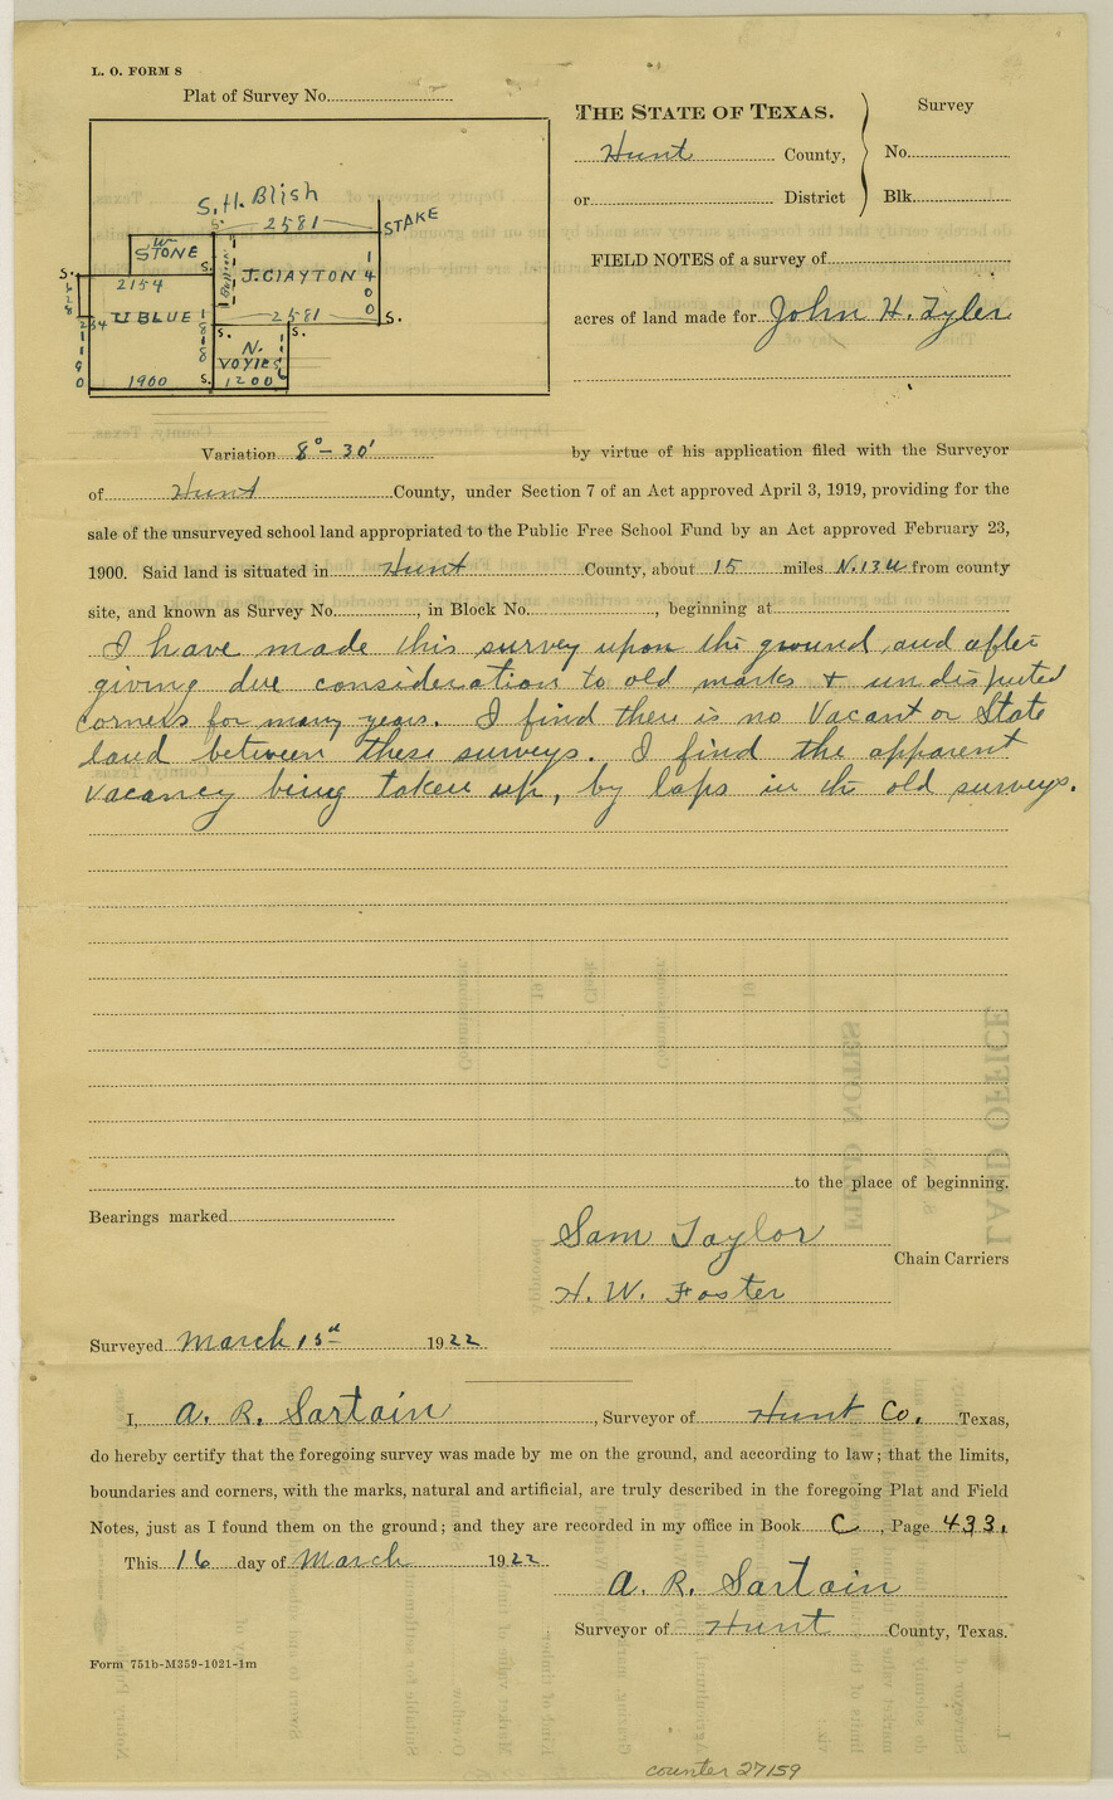 L. O. FORM 8
Plat of Survey No.
S. H. Blish
S. 2581 STAKE
W STONE
S. S. J. CLAYTON 1400
2154
628
234 U BLUE 2581 S.
1190 1818 S. S.
N. VOYIES
1900 S. 1200
THE STATE OF TEXAS.
Hunt County,
or District
Survey
No.
Blk.
FIELD NOTES of a survey of
acres of land made for John H. Tyler
Variation 8° – 30' by virtue of his application filed with the Surveyor
of Hunt County, under Section 7 of an Act approved April 3, 1919, providing for the
sale of the unsurveyed school land appropriated to the Public Free School Fund by an Act approved February 23,
1900. Said land is situated in Hunt County, about 15 miles N. 13 W from county
site, and known as Survey No. , in Block No. , beginning at
I have made this survey upon the ground, and after
giving due consideration to old marks + undisputed
corners for many years. I find there is no Vacant or State
land between these surveys. I find the apparent
vacancy being taken up, by laps in the old surveys.
to the place of beginning.
Bearings marked
Sam Taylor
Chain Carriers
H. W. Foster
Surveyed March 15th 1922
I, A. R. Sartain , Surveyor of Hunt Co. Texas,
do hereby certify that the foregoing survey was made by me on the ground, and according to law; that the limits,
boundaries and corners, with the marks, natural and artificial, are truly described in the foregoing Plat and Field
Notes, just as I found them on the ground; and they are recorded in my office in Book C , Page 433.
This 16 day of March 1922
A. R. Sartain
Surveyor of Hunt County, Texas.
Form 751b-M359-1021-1m
counter 27159